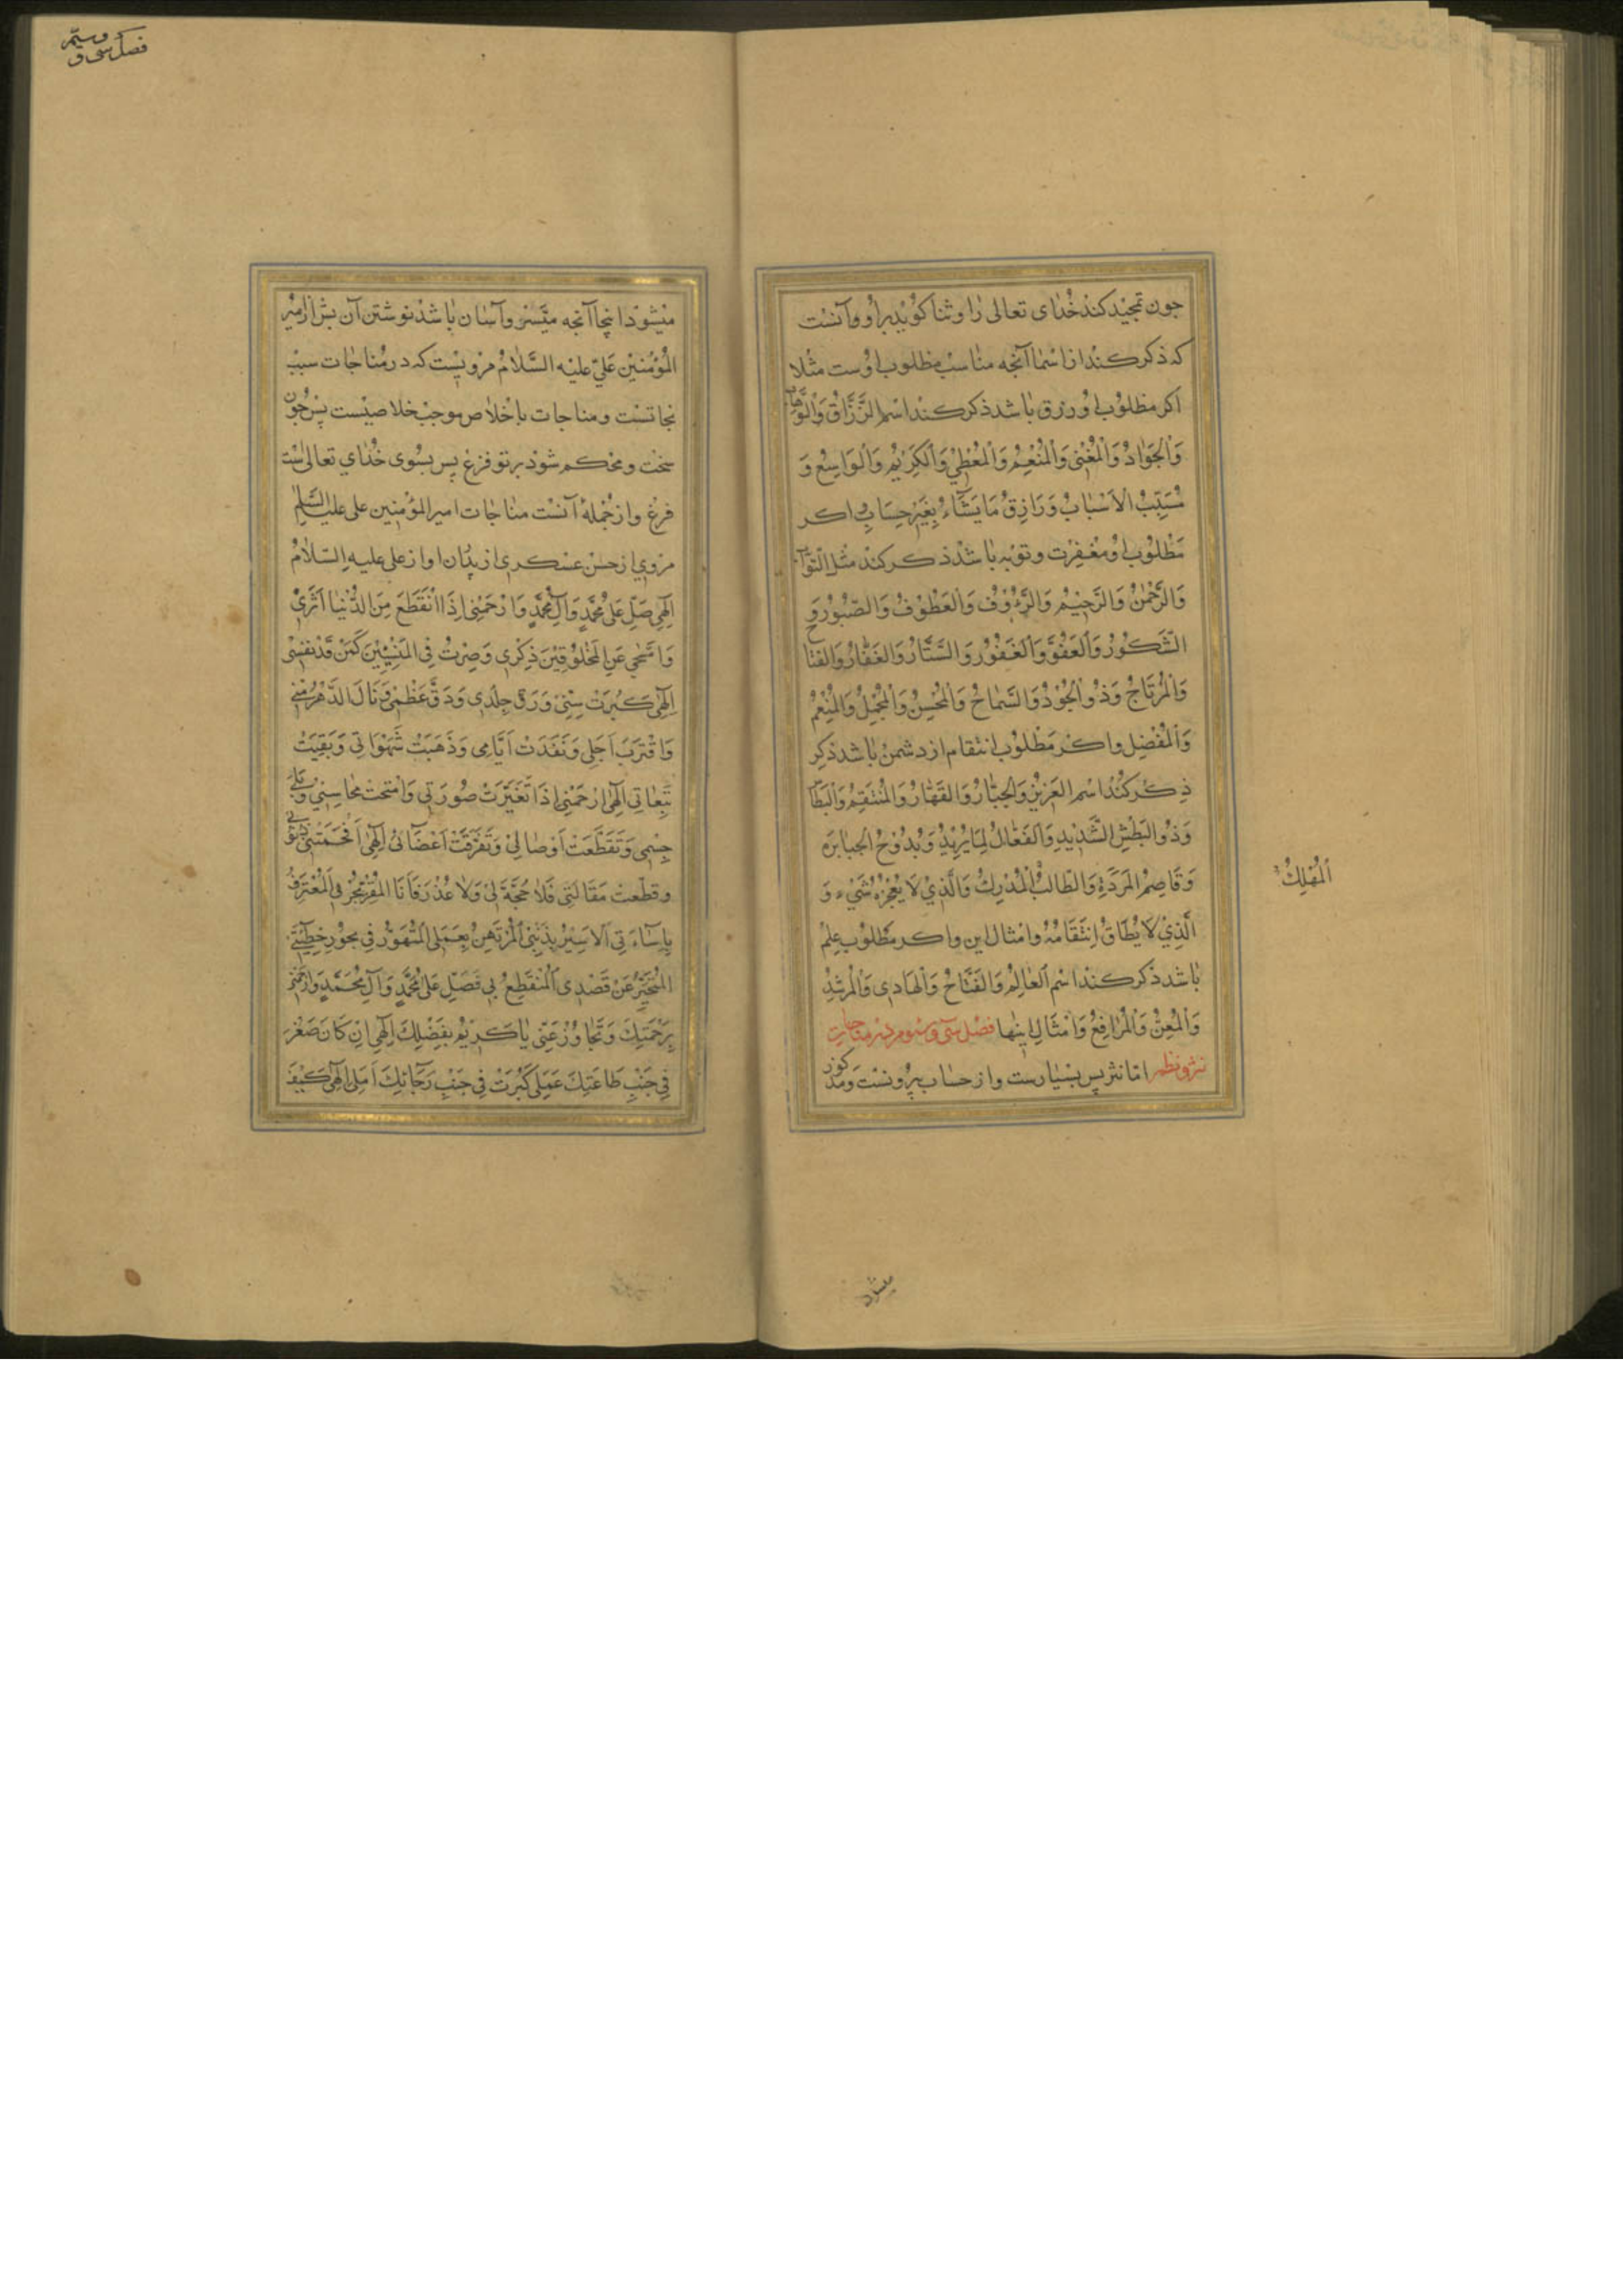 چون تمجید کند خدای تعالی را و ثنا گوید بر او و آنست
که ذکر کند از اسما آنچه مناسب مطلوب اوست مثلا
اکر مطلوب او رزق باشد ذکر کند اسم الرَّزَّاقُ وَالْوَهَّابُ
وَالْجَوَادُ وَالْمُغْنِی وَالْمُنْعِمُ وَالْمُعْطِيْ وَالْكَرِيْمُ وَالْوَاسِعُ وَ
مُسَبِّبُ الْاَسْبَابُ وَرَازِقُ مَا يَشَآءُ بِغَيْرِ حِسَابٍ اکر
مطلوب او مغفرت و توبه باشد ذکر کند مثل التَّوَّاب
وَالرَّحْمٰنُ وَالرَّحِيْمُ وَالرَّءُوْفُ وَالْعَطُوْفُ وَالصَّبُوْرُ وَ
الشَّكُوْرُ وَالْعَفُوُّ وَالْغَفُوْرُ وَالسَّتَّارُ وَالْغَفَّارُ وَالْفَتَّاحُ
وَالْمُرْتَاحُ وَذُو الْجُوْدِ وَالسَّمَاحُ وَالْمُحْسِنُ وَالْمُجْمِلُ وَالْمُنْعِمُ
وَالْمُفْضِلُ و اکر مطلوب انتقام از دشمن باشد ذکر
ذکر کند اسم الْعَزِيْزُ وَالْجَبَّارُ وَالْقَهَّارُ وَالْمُنْتَقِمُ وَالْبَطَّا
وَذُو الْبَطْشِ الشَّدِيْدِ وَالْفَعَّالُ لِمَا يُرِيْدُ وَ الْجَبَابِرَه
وَقَاصِمُ الْمَرَدَةِ وَالطَّالِبُ الْمُدْرِكُ وَالَّذِيْ لَا يُعْجِزُهُ شَيْءٌ وَ
الْمُهْلِكُ
الَّذِيْ لَا يُطَاقُ اِنْتِقَامُهُ و امثال این و اکر مطلوب علم
باشد ذکر کند اسم الْعَالِمُ وَالْفَتَّاحُ وَالْهَادِی وَالْمُرْشِدُ
وَالْمُعِزُّ وَالرَّافِعُ وَ اَمْثَالِ اینها فصل سی و سوم در مناجات
نثر و نظم اما نثر پس بسیارست و از حساب بیرونست و مذکور
میشود
فصل سی و
میشود اینجا آنچه میسر و آسان باشد نوشتن آن پس از امیر
المُؤْمِنین علی علیه السّلام مرویست که در مناجات سبب
نجاتست و مناجات باخلاص موجب خلاصیست پس چون
سخت و محکم شود بر تو فزع پس بسوی خدای تعالی است
فزع و از جملهٔ آنست مناجات امیر المؤمنین علی علیه السّلم
مروی از حسن عسکری از پدران او از علی علیه السّلام
اِلٰهِي صَلِّ عَلٰى مُحَمَّدٍ وَآلِ مُحَمَّدٍ وَارْحَمْنِي اِذَا انْقَطَعَ مِنَ الدُّنْيَا اَثَرِيْ
وَامَّحٰى عَنِ الْمَخْلُوْقِيْنَ ذِكْرِی وَصِرْتُ فِي الْمَنْسِيِّيْنَ كَمَنْ قَدْ نُسِيَ
اِلٰهِی كَبُرَتْ سِنِّيْ وَرَقَّ جِلْدِی وَدَقَّ عَظْمِیْ وَنَالَ الدَّهْرُ مِنِّي
وَاقْتَرَبَ اَجَلِي وَنَفِدَتْ اَيَّامِی وَذَهَبَتْ شَهَوَاتِی وَبَقِيَتْ
تَبِعَاتِی اِلٰهِی ارْحَمْنِي اِذَا تَغَيَّرَتْ صُوْرَتِی وَامْتَحَتْ مَحَاسِنِيْ وَبَلِيَ
جِسْمِی وَتَقَطَّعَتْ اَوْصَالِيْ وَتَفَرَّقَتْ اَعْضَآئِی اِلٰهِی اَفْحَمَتْنِیْ ذُنُوبِي
وقطعت مَقَالَتِی فَلَا حُجَّةَ لِيْ وَلَا عُذْرَ فَاَنَا الْمُقِرُّ بِجُرْمِي الْمُعْتَرِفُ
بِاِسَآءَتِی الْاَسِيْرُ بِذَنْبِیْ الْمُرْتَهَنُ بِعَمَلِی الْمُتَهَوِّرُ فِی بُحُوْرِ خَطِيْٓئَتِي
الْمُتَحَيِّرُ عَنْ قَصْدِی الْمُنْقَطِعُ بِي فَصَلِّ عَلٰى مُحَمَّدٍ وَآلِ مُحَمَّدٍ وَارْحَمْنِي
بِرَحْمَتِكَ وَتَجَاوَزْ عَنِّی يَا كَرِيْمُ بِفَضْلِكَ اِلٰهِی اِنْ كَانَ صَغُرَ
فِي جَنْبِ طَاعَتِكَ عَمَلِی كَبُرَتْ فِي جَنْبِ رَجَآئِكَ اَمَلِی اِلٰهِی كَيْفَ